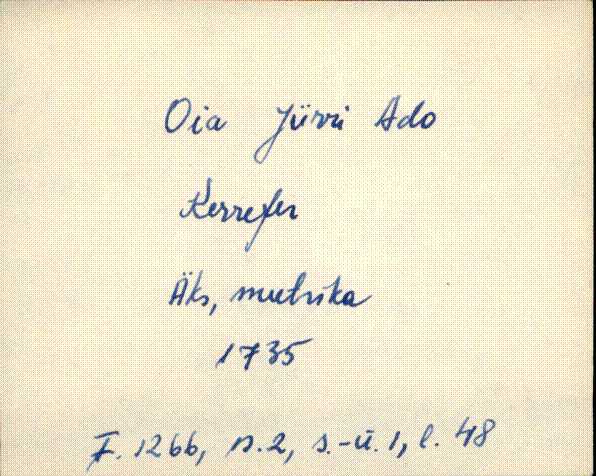 Oia Jürri Ado
Kerrefer
Äks, meetrika
1735
F. 1266, n. 2, s.-ü. 1, l. 48